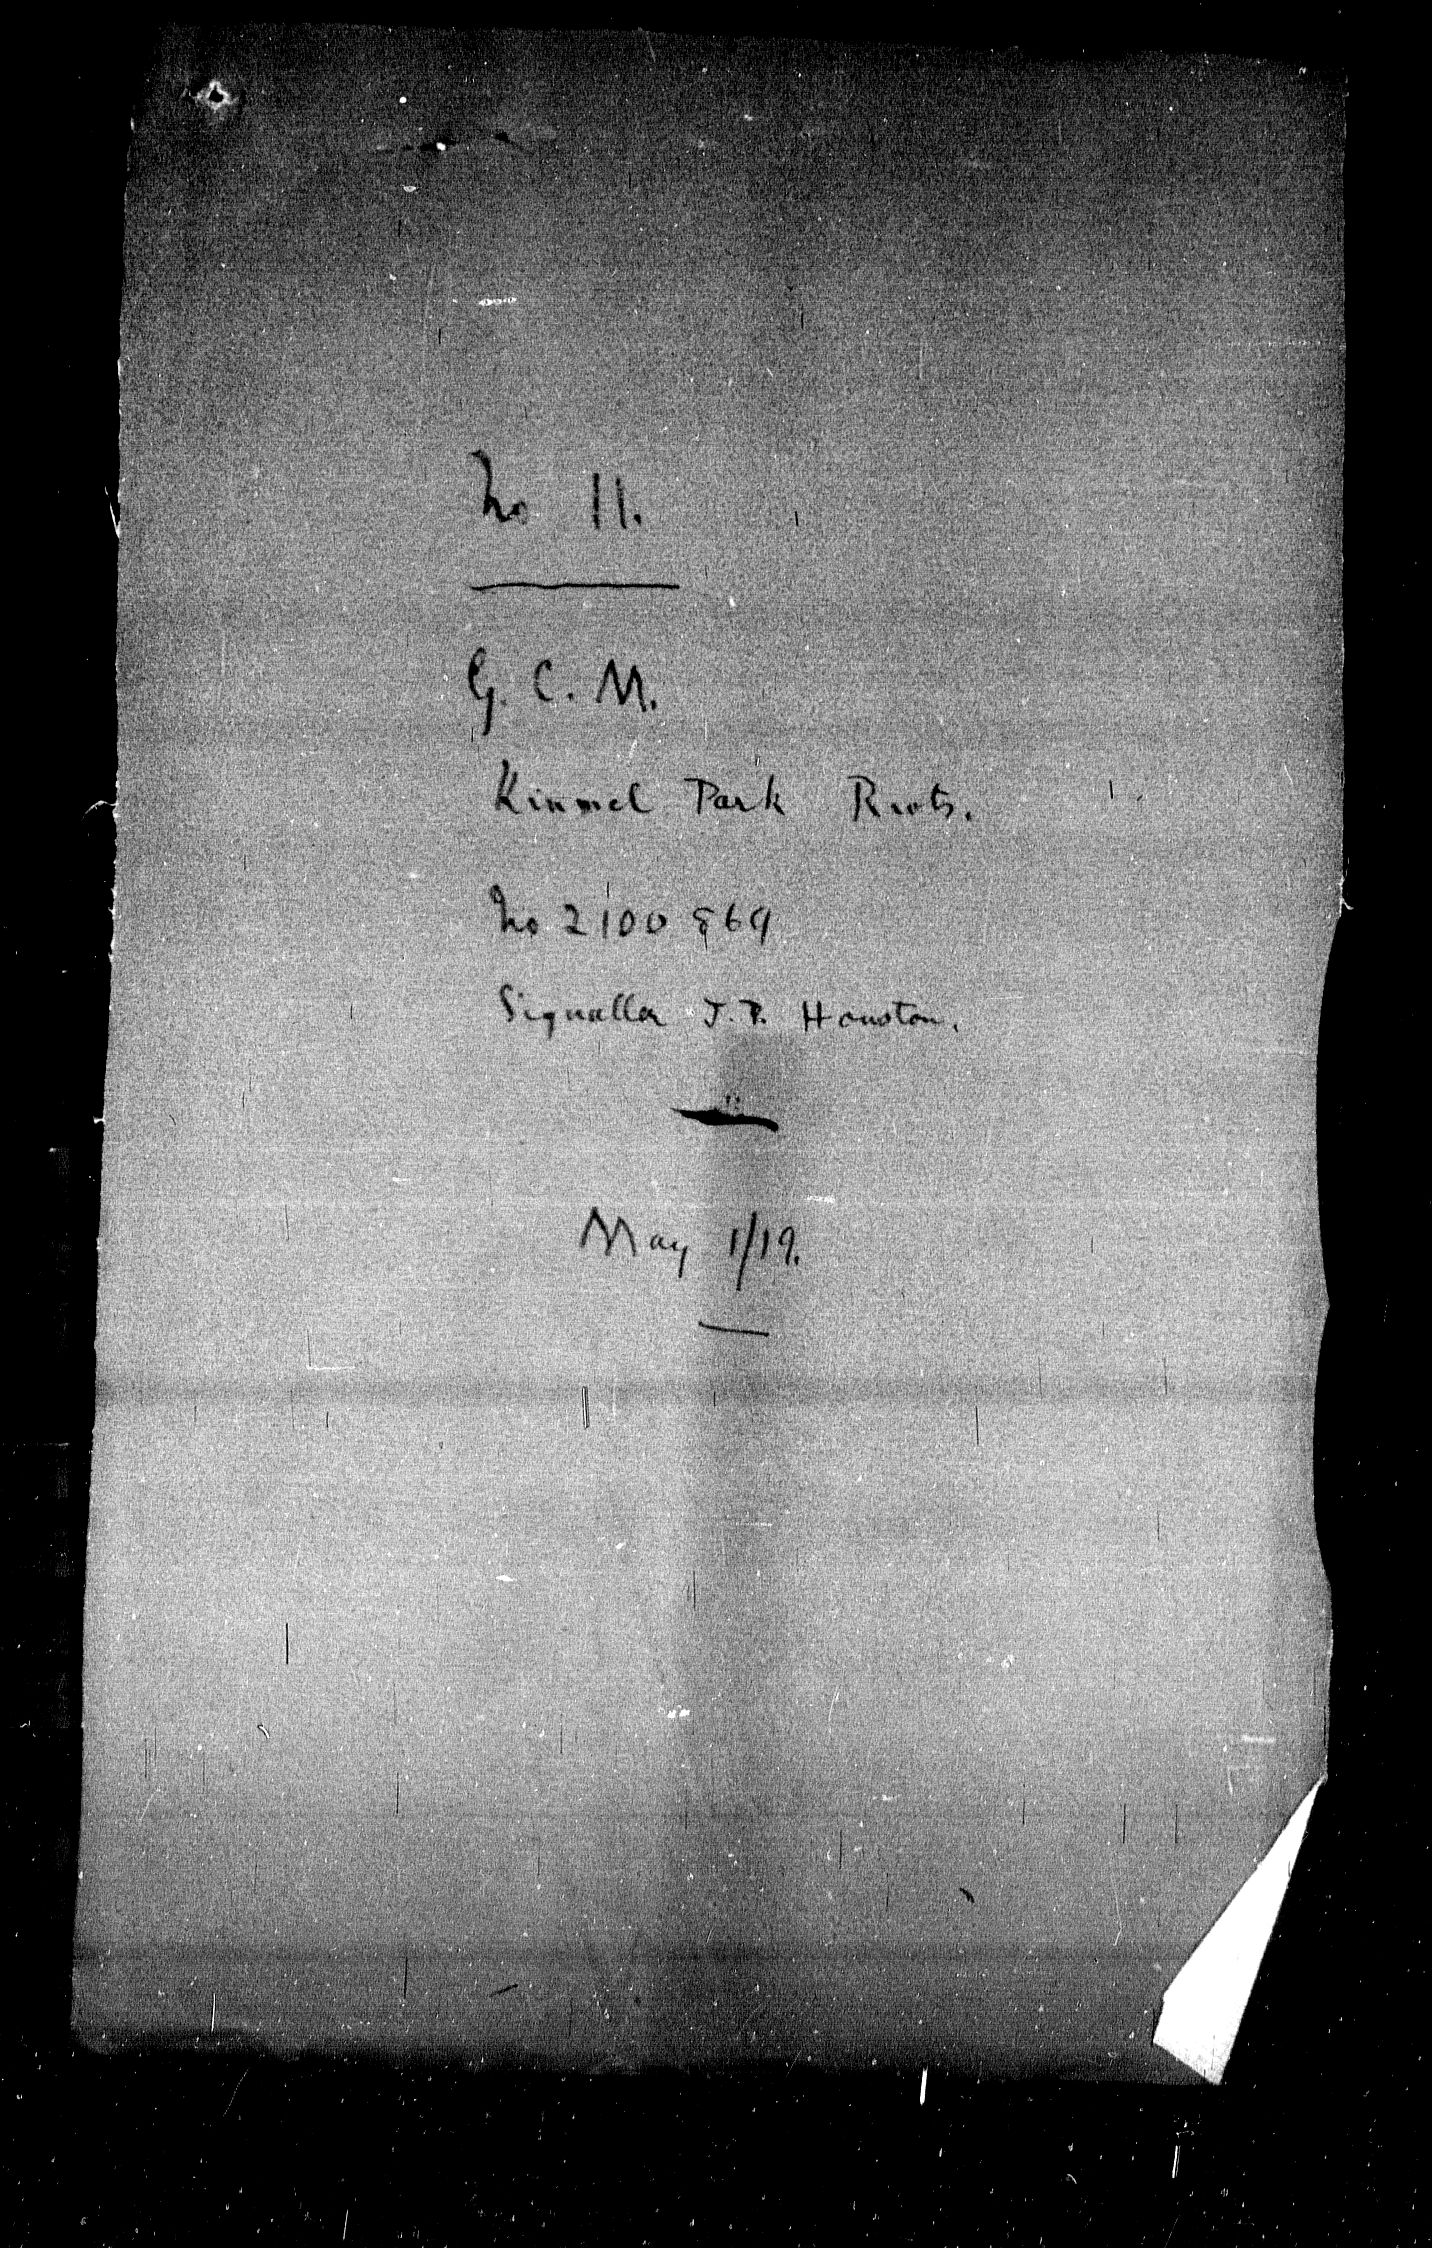 No 11.
G. C. M.
Kinmel Park Riots.
No 2100869
Signaller J. P. Houston.
May 1/19.